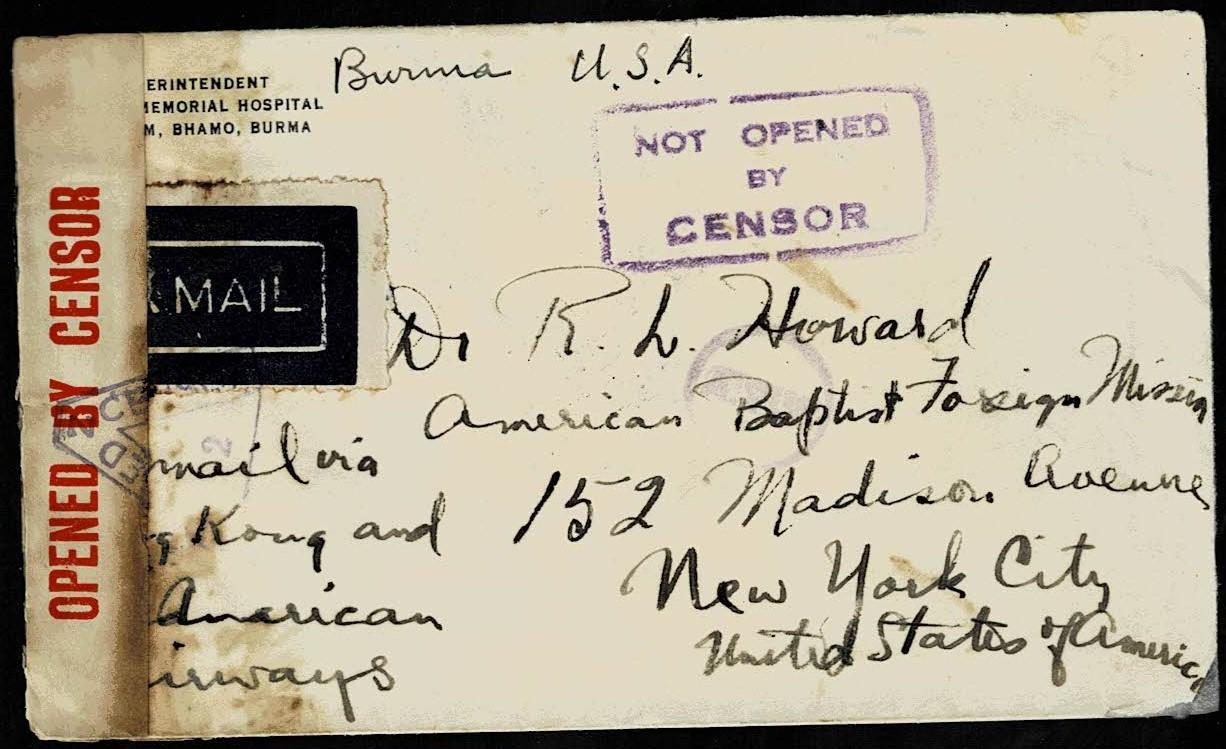 Burma U.S.A.
ERINTENDENT
MEMORIAL HOSPITAL
M, BHAMO, BURMA
NOT OPENED
BY
CENSOR
OPENED BY CENSOR
MAIL
Dr R. L. Howard
American Baptist Foreign Mission
152 Madison Avenue
New York City
United States of America
mail via
g Kong and
American
irways